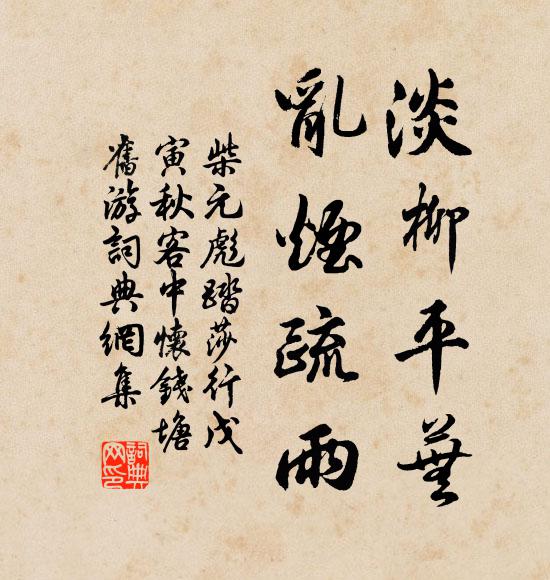 淡柳平蕪
亂煙疏雨
柴元彪踏莎行戊
寅秋客中懷錢塘
舊游詞典網集
詞典
网印